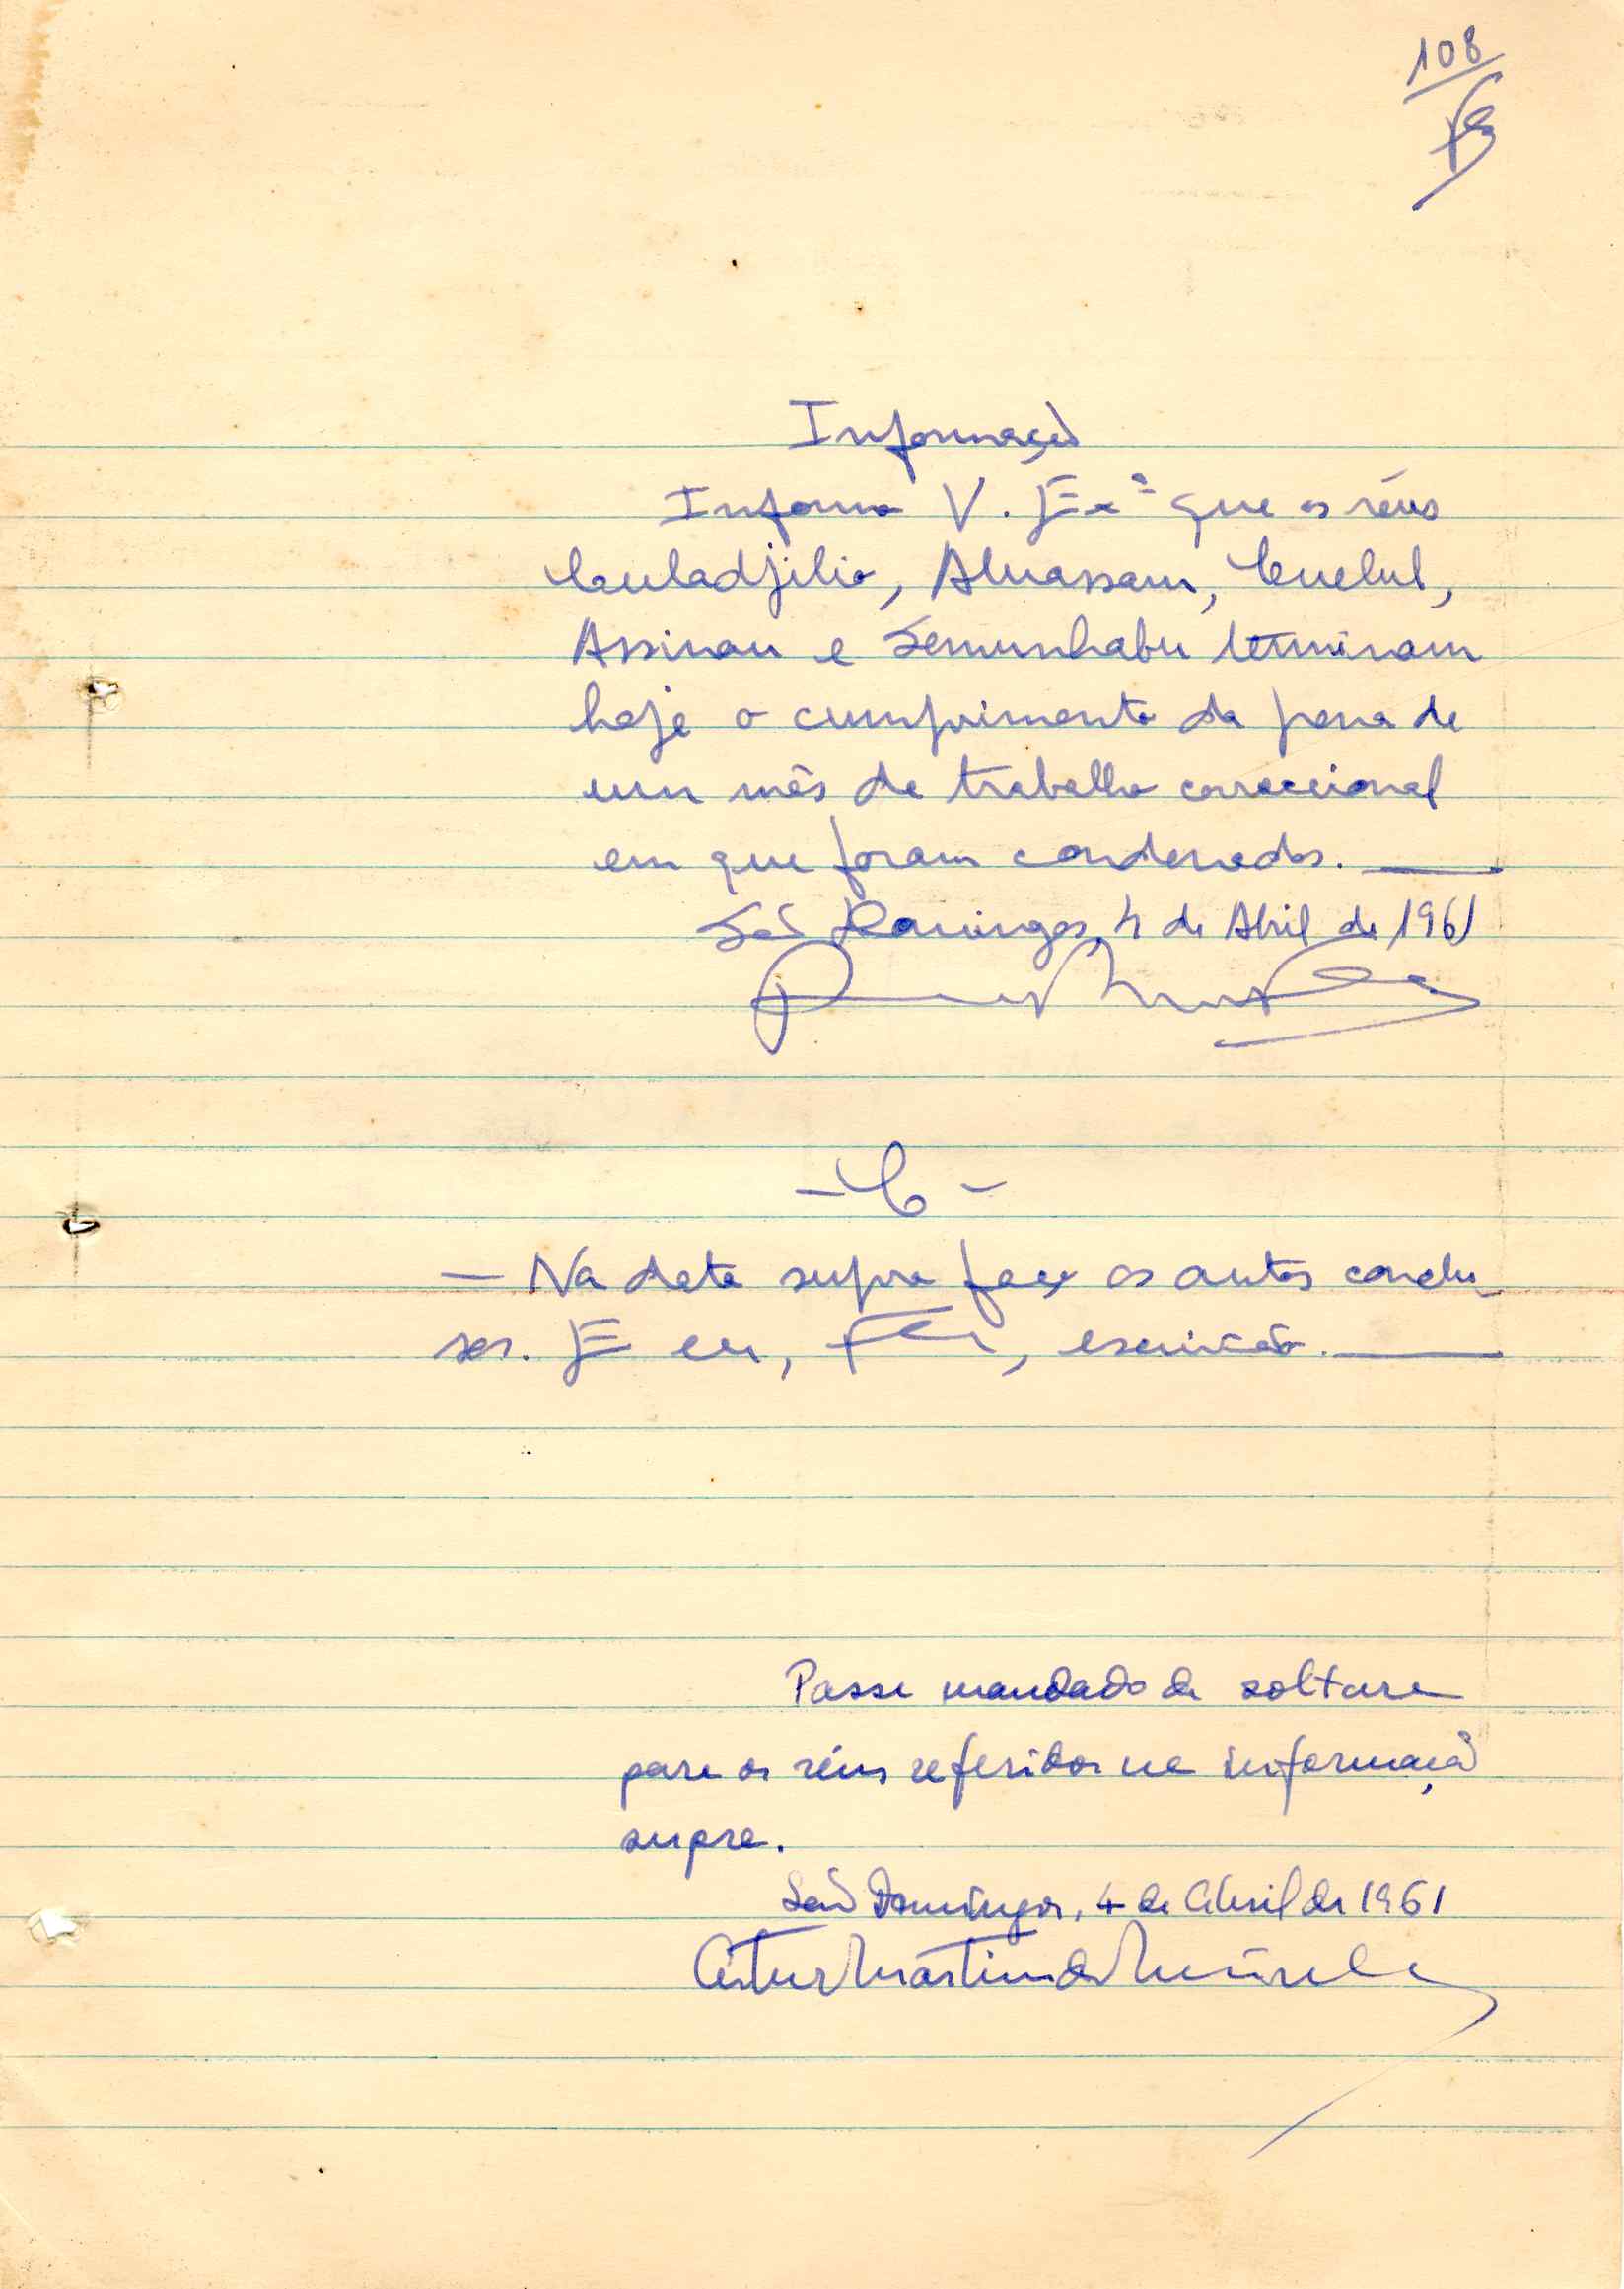 108
Informação
Informo V. Exª que os réus
Culadjilio, Aluassam, Cuelul,
Assinau e Semunhabu terminam
hoje o cumprimento da pena de
um mês de trabalho correccional
em que foram condenados.
São Domingos, 4 de Abril de 1961
- C -
— Na data supra faço os autos conclu-
sos. E eu, , escrivão.
Passe mandado de soltura
para os réus referidos na informação
supra.
São Domingos, 4 de Abril de 1961
Artur Martins de Meireles